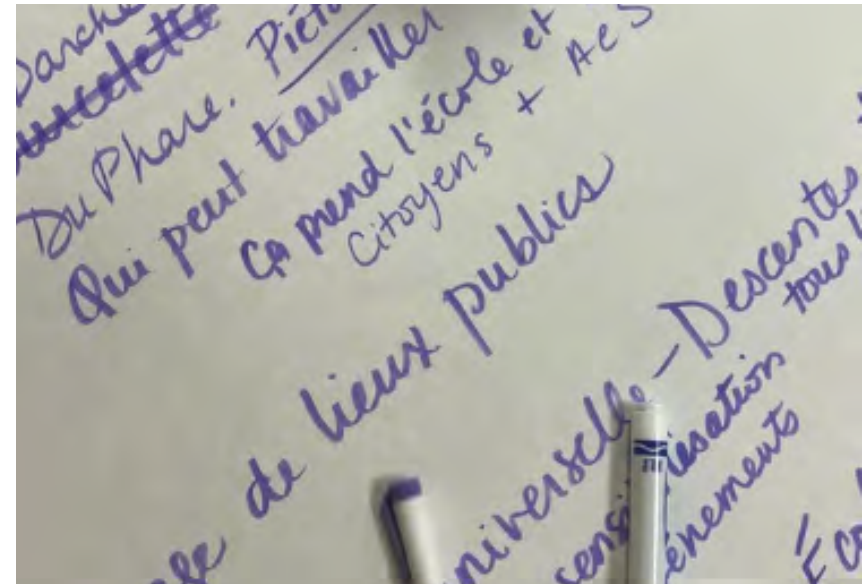 Du Phare. Piéto
Qui peut travailler
Ça prend l'école et
Citoyens + AES
de lieux publics
niverselle - Descentes
tous l
sensi isation
énements
Éco